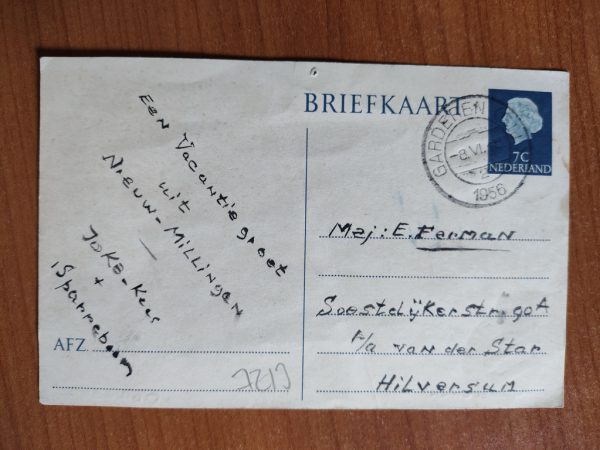 BRIEFKAART
GARDEREN
-8.VI.
1956
7C
NEDERLAND
EEN Vacantiegroet
uit
NIEUW-MILLINGEN
—
JOKE-Kees
+
Spanneboom
AFZ
Mej: E. Ferman
Soestdijkerstr. 90A
F/a van der Star
Hilversum